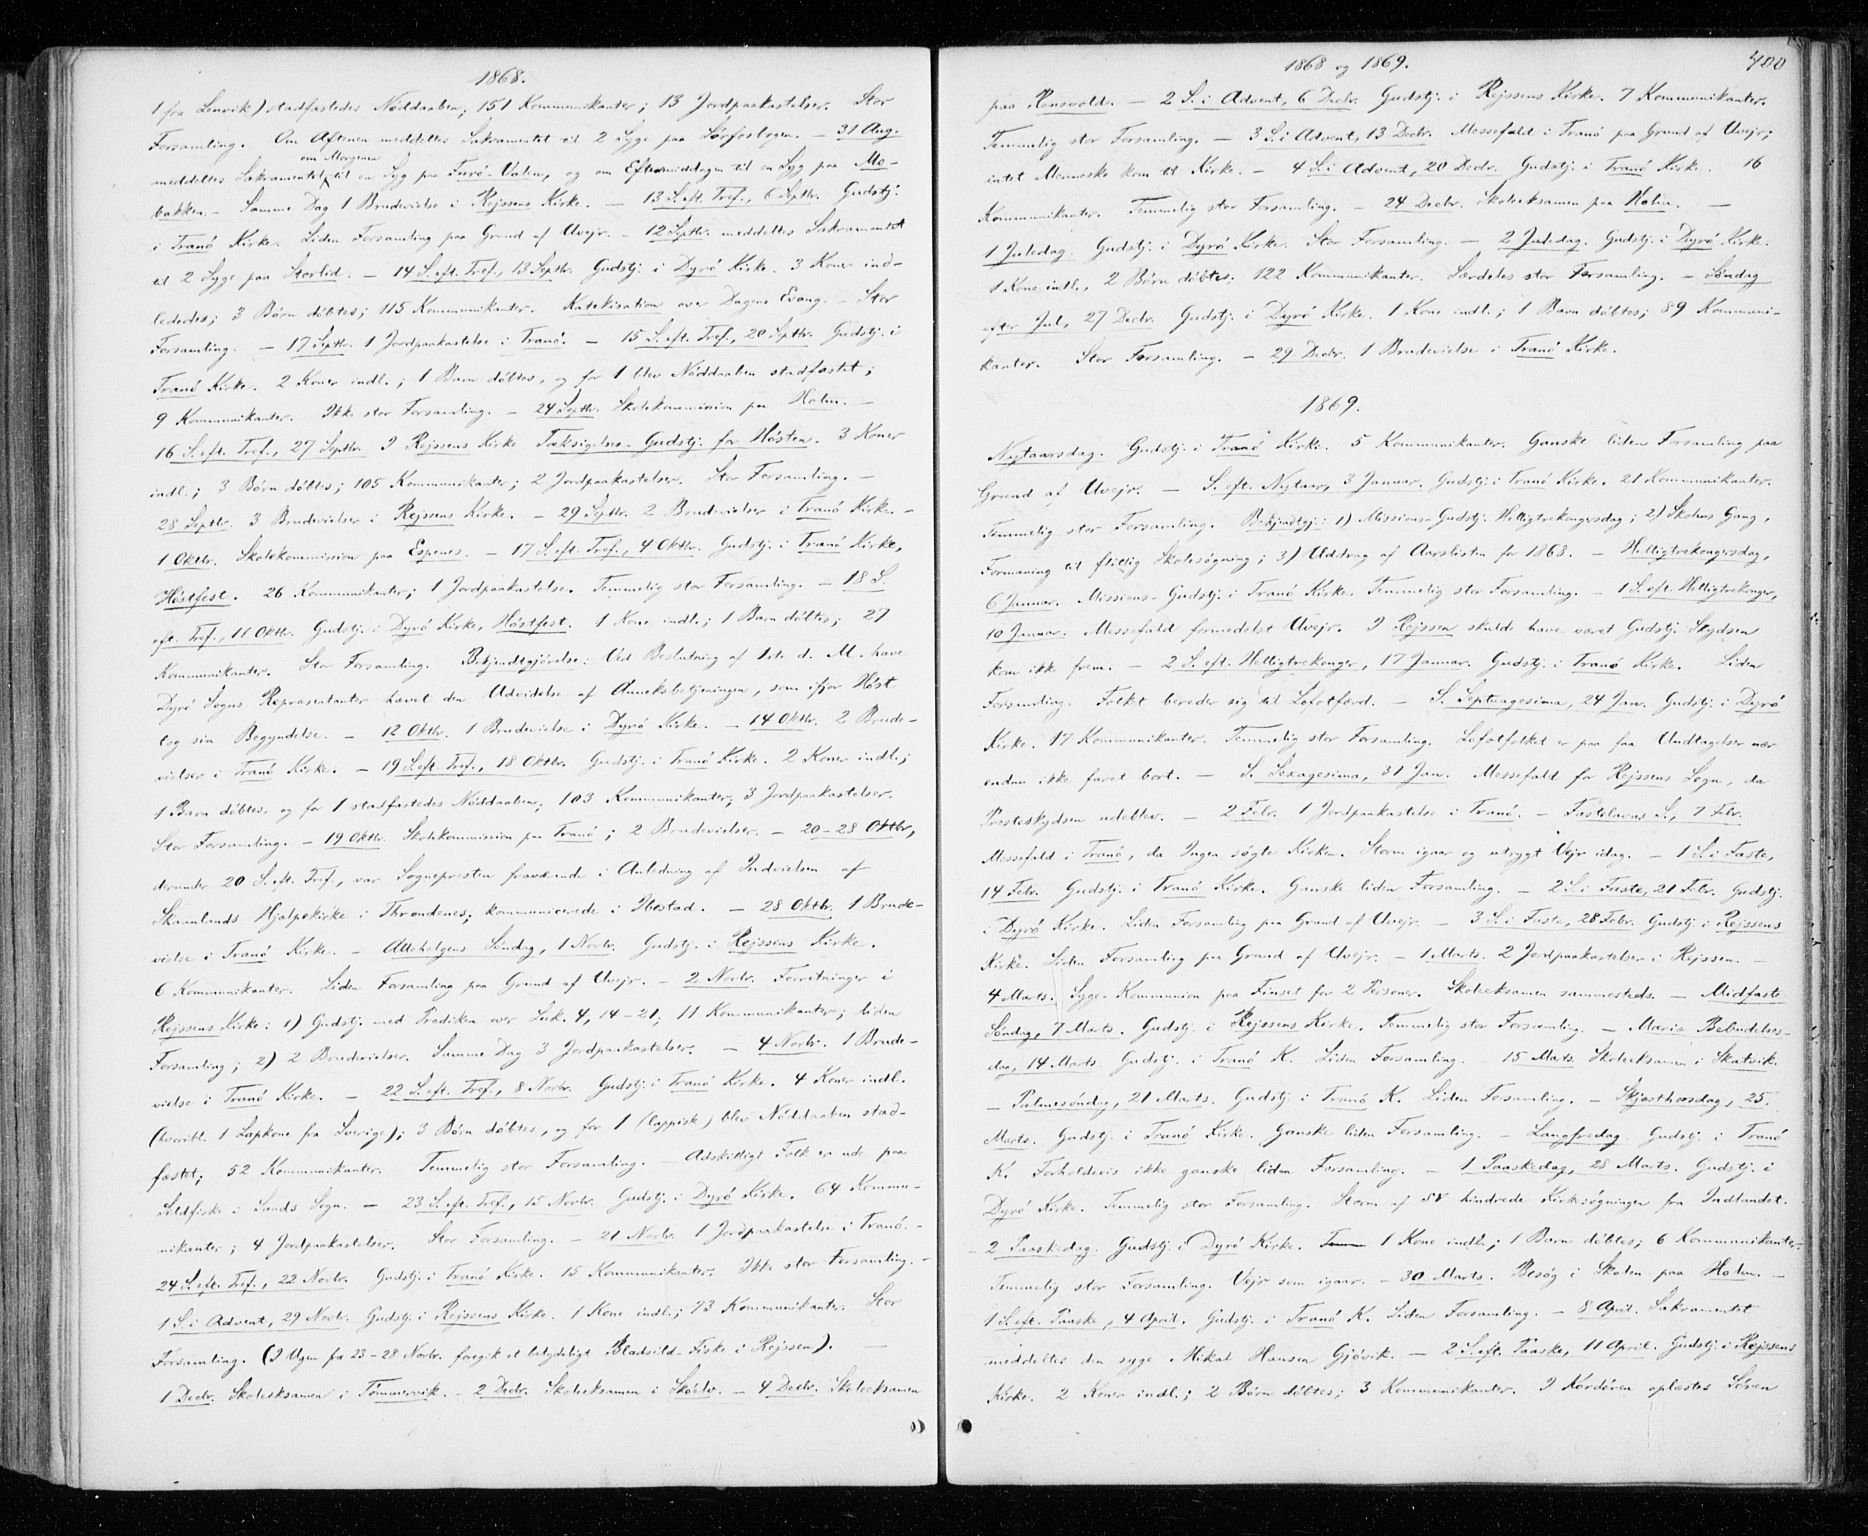 1868.
1 fra Lenvik) stadfæstedes Nöddaaben; 151 Kommunikanter; 13 Jordpaakastelser. Stor
Forsamling. Om Aftenen meddeltes Sakramentet til 2 Syge paa Sörfostogen. – 31 Aug.
om Morgenen
meddeltes Sakramentet til en Syg paa Furö-Valen, og om Eftermiddagen til en Syg paa Mo-
bakken. – Samme Dag 1 Brudevielse i Rejssens Kirke. – 13 S. eft. Tref., 6 Septbr. Gudstj.
i Tranö Kirke. Liden Forsamling paa Grund af Uvejr. – 12 Septbr. meddeltes Sakramentet
til 2 Syge paa Storlid. – 14 S. eft. Tref., 13 Septbr. Gudstj. i Dyrö Kirke. 3 Koner ind-
lededes; 3 Börn döbtes; 115 Kommunikanter. Katekisation over Dagens Evang. – Stor
Forsamling. – 17 Septbr. 1 Jordpaakastelse i Tranö. – 15 S. eft. Tref., 20 Septbr. Gudstj. i
Tranö Kirke. 2 Koner indl.; 1 Barn döbtes, og for 1 blev Nöddaaben stadfæstet;
9 Kommunikanter. Ikke stor Forsamling. – 24 Septbr. Skolekommission paa Holm. –
16 S. eft. Tref., 27 Septbr. I Rejssens Kirke Taksigelses-Gudstj. for Hösten. 3 Koner
indl.; 3 Börn döbtes; 105 Kommunikanter; 2 Jordpaakastelser. Stor Forsamling. –
28 Septbr. 3 Brudevielser i Rejssens Kirke. – 29 Septbr. 2 Brudevielser i Tranö Kirke. –
1 Oktbr. Skolekommission paa Espenes. – 17 S. eft. Tref., 4 Oktbr. Gudstj. i Tranö Kirke,
Höstfest. 26 Kommunikanter; 1 Jordpaakastelse. Temmelig stor Forsamling. – 18 S.
eft. Tref., 11 Oktbr. Gudstj. i Dyrö Kirke, Höstfest. 1 Kone indl.; 1 Barn döbtes; 27
Kommunikanter. Stor Forsamling. Bekjendtgjörelse: Ved Beslutning af 1ste d. M. have
Dyrö Sogns Repræsentanter hævet den Udvidelse af Anneksbetjeningen, som ifjor Höst
tog sin Begyndelse. – 12 Oktbr. 1 Brudevielse i Dyrö Kirke. – 14 Oktbr. 2 Brude-
vielser i Tranö Kirke. – 19 S. eft. Tref., 18 Oktbr. Gudstj. i Tranö Kirke. 2 Koner indl.;
1 Barn döbtes, og for 1 stadfæstedes Nöddaaben; 103 Kommunikanter; 3 Jordpaakastelser.
Stor Forsamling. – 19 Oktbr. Skolekommission paa Tranö; 2 Brudevielser. – 20–28 Oktbr.,
derunder 20 S. eft. Tref., var Sognepresten fraværende i Anledning af Indvielsen af
Skaanlands Hjælpekirke i Throndenes; kommunicerede i Ibestad. – 28 Oktbr. 1 Brude-
vielse i Tranö Kirke. – Allehelgens Söndag, 1 Novbr. Gudstj. i Rejssens Kirke.
6 Kommunikanter. Liden Forsamling paa Grund af Uvejr. – 2 Novbr. Forretninger i
Rejssens Kirke: 1) Gudstj. med Prædiken over Luk. 4, 14–21; 11 Kommunikanter; liden
Forsamling; 2) 2 Brudevielser. Samme Dag 3 Jordpaakastelser. – 4 Novbr. 1 Brude-
vielse i Tranö Kirke. – 22 S. eft. Tref., 8 Novbr. Gudstj. i Tranö Kirke. 4 Koner indl.
(hvoribl. 1 Lapkone fra Sverige); 3 Börn döbtes, og for 1 (lappisk) blev Nöddaaben stad-
fæstet; 52 Kommunikanter. Temmelig stor Forsamling. – Adskilligt Folk er ude paa
Sildfiske i Sands Sogn. – 23 S. eft. Tref., 15 Novbr. Gudstj. i Dyrö Kirke. 64 Kommu-
nikanter; 4 Jordpaakastelser. Stor Forsamling. – 21 Novbr. 1 Jordpaakastelse i Tranö. –
24 S. eft. Tref., 22 Novbr. Gudstj. i Tranö Kirke. 15 Kommunikanter. Ikke stor Forsamling. –
1 S. i Advent, 29 Novbr. Gudstj. i Rejssens Kirke. 1 Kone indl.; 73 Kommunikanter. Stor
Forsamling. (I Ugen fra 23–28 Novbr. foregik et betydeligt Bladsild-Fiske i Rejssen). –
1 Decbr. Skoleeksamen i Tömmervik. – 2 Decbr. Skoleeksamen i Sköelv. – 4 Decbr. Skoleeksamen
1868 og 1869.
400
paa Rensvold. – 2 S. i Advent, 6 Decbr. Gudstj. i Rejssens Kirke. 7 Kommunikanter.
Temmelig stor Forsamling. – 3 S. i Advent, 13 Decbr. Messefald i Tranö paa Grund af Uvejr;
intet Menneske kom til Kirke. – 4 S. i Advent, 20 Decbr. Gudstj. i Tranö Kirke. 16
Kommunikanter. Temmelig stor Forsamling. – 24 Decbr. Skoleeksamen paa Holm. –
1 Juledag. Gudstj. i Dyrö Kirke. Stor Forsamling. – 2 Juledag. Gudstj. i Dyrö Kirke.
1 Kone indl., 2 Börn döbtes; 122 Kommunikanter. Særdeles stor Forsamling. – Söndag
efter Jul, 27 Decbr. Gudstj. i Dyrö Kirke. 1 Kone indl.; 1 Barn döbtes; 89 Kommuni-
kanter. Stor Forsamling. – 29 Decbr. 1 Brudevielse i Tranö Kirke.
1869.
Nytaarsdag. Gudstj. i Tranö Kirke. 5 Kommunikanter. Ganske liden Forsamling paa
Grund af Uvejr. – S. eft. Nytaar, 3 Januar. Gudstj. i Tranö Kirke. 21 Kommunikanter.
Temmelig stor Forsamling. Bekjendtgj.: 1) Missions-Gudstj. Helligtrekongersdag; 2) Skolens Gang,
Formaning til flittig Skolesögning; 3) Uddrag af Aarslisten for 1868. – Helligtrekongersdag,
6 Januar. Missions-Gudstj. i Tranö Kirke. Temmelig stor Forsamling. – 1 S. eft. Helligtrekonger,
10 Januar. Messefald formedelst Uvejr. I Rejssen skulde have været Gudstj. Skydsen
kom ikke frem. – 2 S. eft. Helligtrekonger, 17 Januar. Gudstj. i Tranö Kirke. Liden
Forsamling. Folket bereder sig til Lofotfærd. – S. Septuagesima, 24 Jan. Gudstj. i Dyrö
Kirke. 17 Kommunikanter. Temmelig stor Forsamling. Lofotfolket er paa faa Undtagelser nær
endnu ikke faret bort. – S. Sexagesima, 31 Jan. Messefald for Rejssens Sogn, da
Presteskydsen udeblev. – 2 Febr. 1 Jordpaakastelse i Tranö. – Fastelavns S., 7 Febr.
Messefald i Tranö, da Ingen sögte Kirken. Storm igaar og utrygt Vejr idag. – 1 S. i Faste,
14 Febr. Gudstj. i Tranö Kirke. Ganske liden Forsamling. – 2 S. i Faste, 21 Febr. Gudstj.
i Dyrö Kirke. Liden Forsamling paa Grund af Uvejr. – 3 S. i Faste, 28 Febr. Gudstj. i Rejssens
Kirke. Liden Forsamling paa Grund af Uvejr. – 1 Marts. 2 Jordpaakastelser i Rejssen. –
4 Marts. Syge-Kommunion paa Finset for 2 Personer. Skoleeksamen sammesteds. – Midfaste
Söndag, 7 Marts. Gudstj. i Rejssens Kirke. Temmelig stor Forsamling. – Mariæ Bebudelses-
dag, 14 Marts. Gudstj. i Tranö K. Liden Forsamling. – 15 Marts. Skoleeksamen i Skatvik.
– Palmesöndag, 21 Marts. Gudstj. i Tranö K. Liden Forsamling. – Skjærthorsdag, 25.
Marts. Gudstj. i Tranö Kirke. Ganske liden Forsamling. – Langfredag. Gudstj. i Tranö
K. Forholdsvis ikke ganske liden Forsamling. – 1 Paaskedag, 28 Marts. Gudstj. i
Dyrö Kirke. Temmelig stor Forsamling. Storm af SV hindrede Kirkesögningen fra Indlandet.
– 2 Paaskedag. Gudstj. i Dyrö Kirke. 1 Kone indl.; 1 Barn döbtes; 6 Kommunikanter.
Temmelig stor Forsamling. Vejr som igaar. – 30 Marts. Besög i Skolen paa Holm. –
1 S. eft. Paaske, 4 April. Gudstj. i Tranö K. Liden Forsamling. – 8 April. Sakramentet
meddeltes den syge Mikal Hansen Gjövik. – 2 S. eft. Paaske, 11 April. Gudstj. i Rejssens
Kirke. 2 Koner indl.; 2 Börn döbtes; 3 Kommunikanter. I Kordören oplæstes Sören